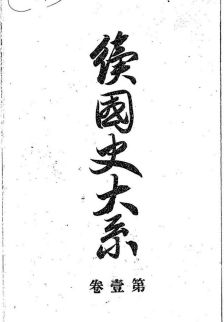 續國史大系
第壹卷